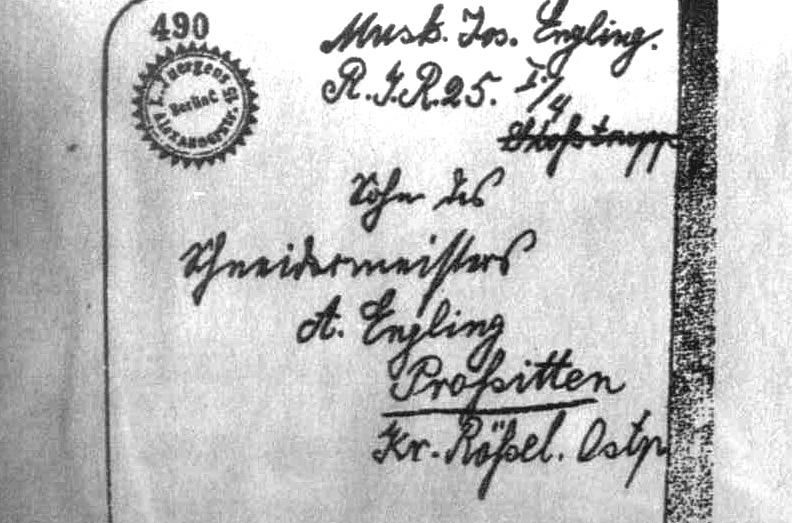 490
L. Juergens
Berlin C
Alexanderstr.
Musk. Jos. Engling.
R.I.R. 25. I./4
Stoßtrupp
Sohn des
Schneidermeisters
A. Engling
Proßitten
Kr. Rößel. Ostp